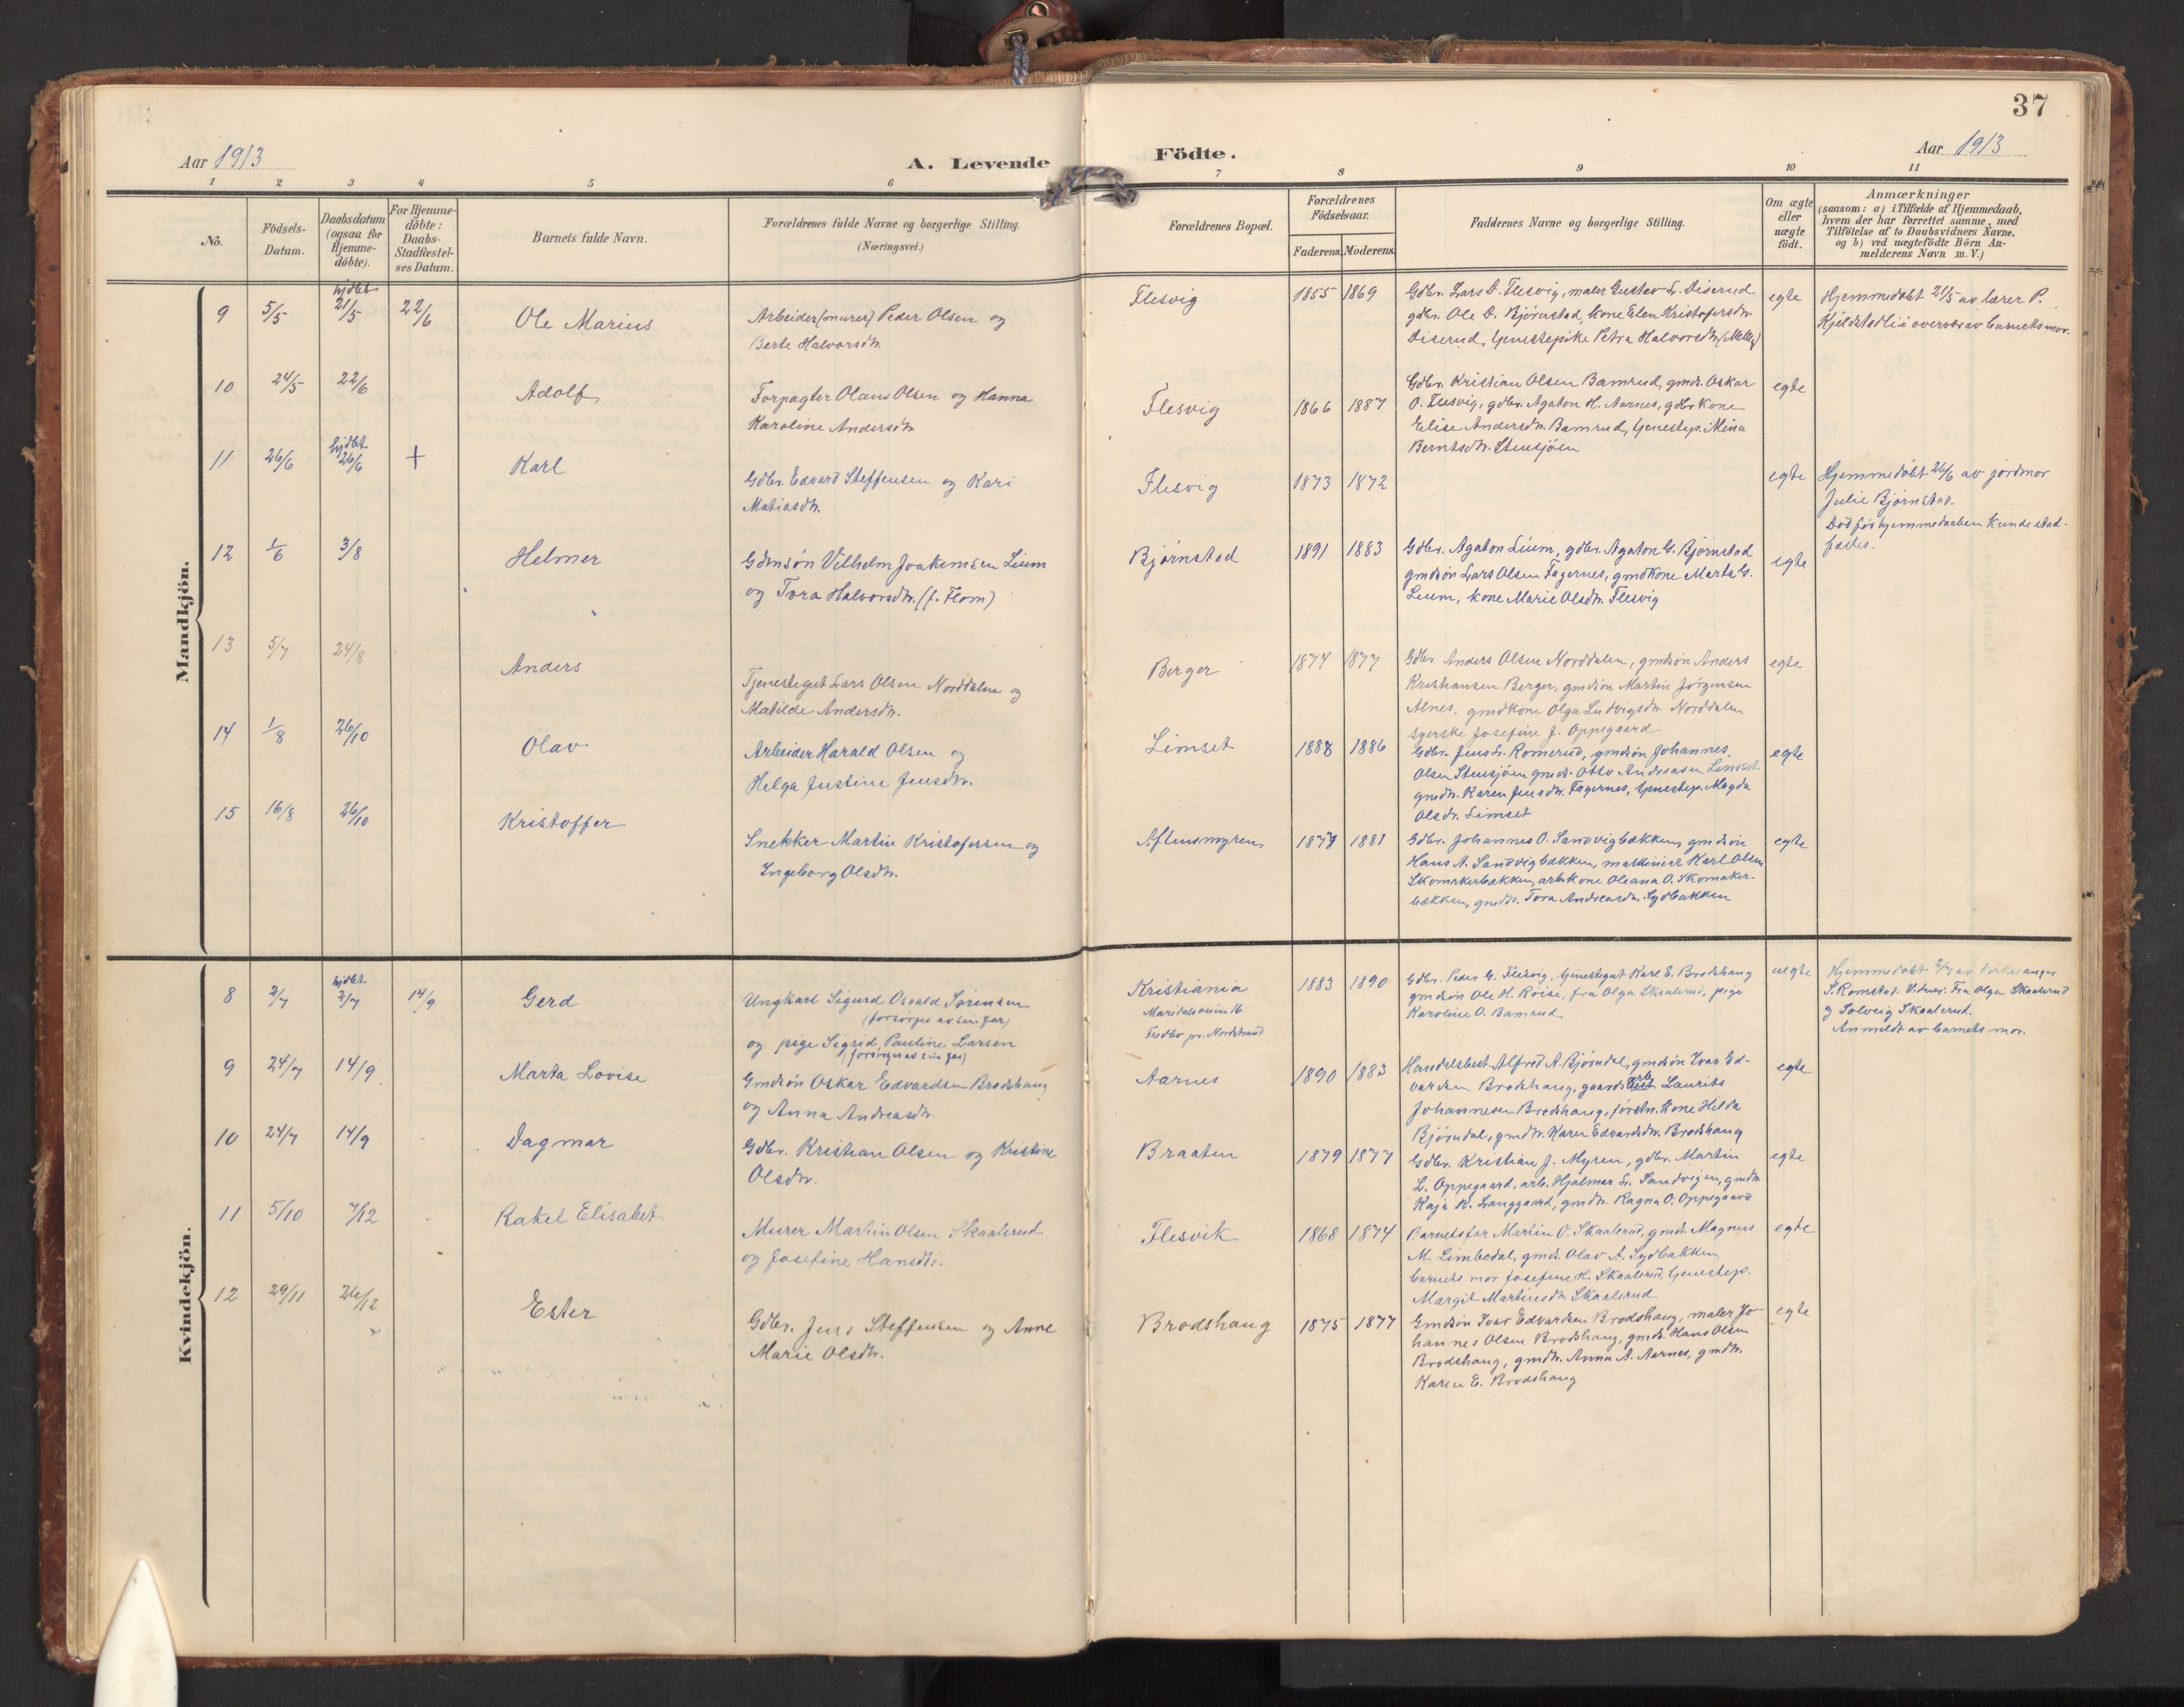 37
Aar 1913
A. Levende
Födte.
Aar 1913
1 2 3 4 5 6 7 8 9 10 11
No.
Födsels-
Datum.
Daabsdatum
(ogsaa for
Hjemme-
döbte).
For Hjemme-
döbte:
Daabs-
Stadfæstel-
ses Datum.
Barnets fulde Navn.
Forældrenes fulde Navne og borgerlige Stilling.
(Næringsvei.)
Forældrenes Bopæl.
Forældrenes
Födselsaar.
Faderens. Moderens.
Faddernes Navne og borgerlige Stilling.
Om ægte
eller
uægte
födt.
Anmærkninger
(saasom: a) i Tilfælde af Hjemmedaab,
hvem der har forrettet samme, med
Tilföielse af to Daabsvidners Navne,
og b) ved uægtefödte Börn An-
melderens Navn m. V.)
Mandkjön.
9 5/5 hjdbt 21/5 22/6 Ole Marius
Arbeider (murer) Peder Olsen og
Berte Halvorsdtr.
Flesvig 1855 1869
Gdbr. Lars D. Flesvig, maler Gustav L. Diserud
gdbr. Ole D. Björnstad, kone Elen Kristofersdtr.
Diserud, tjenestepike Petra Halvorsdtr. (Melby)
egte
Hjemmedøbt 21/5 av lærer P.
Kjeldstadli i overvær av barnets mor.
10 24/5 22/6 Adolf
Forpagter Olaus Olsen og Hanna
Karoline Andersdtr.
Flesvig 1866 1887
Gdbr. Kristian Olsen Bamrud, gmds. Oskar
O. Flesvig, gdbr. Agaton H. Aarnes, gdbrkone
Elise Andersdtr. Bamrud, tjenestep. Mina
Berntsdtr. Stensjöen
egte
11 26/6 hjdbt 26/6 + Karl
Gdbr. Edvard Steffensen og Kari
Matiasdtr.
Flesvig 1873 1872
egte
Hjemmedøbt 26/6 av jordmor
Julie Bjørnstad.
Død før hjemmedaaben kunde stad-
fæstes.
12 1/6 3/8 Helmer
Gdmsøn Vilhelm Joakimsen Lium
og Tora Halvorsdtr. (f. Flom)
Bjørnstad 1891 1883
Gdbr. Agaton Lium, gdbr. Agaton G. Bjørnstad
gmdsøn Lars Olsen Fagernes, gmdkone Marta G.
Lium, kone Marie Olsdtr. Flesvig
egte
13 5/7 24/8 Anders
Tjenestegut Lars Olsen Norddalen og
Matilde Andersdtr.
Berger 1874 1877
Gdbr. Anders Olsen Norddalen, gmdsøn Anders
Kristiansen Berger, gmdsøn Martin Jørgensen
Alnes, gmdkone Olga Ludvigsdtr. Norddalen
syerske Josefine J. Oppegaard
egte
14 1/8 26/10 Olav
Arbeider Harald Olsen og
Helga Justine Jensdtr.
Limset 1888 1886
Gdbr. Jens L. Romerud, gmdsøn Johannes
Olsen Stensjøen gmds. Otto Andreasen Limset
gmdtr. Karen Jensdtr. Fagernes, tjenestep. Magda
Olsdtr. Limset
egte
15 16/8 26/10 Kristoffer
Snekker Martin Kristofersen og
Ingeborg Olsdtr.
Aftensmyren 1877 1881
Gdbr. Johannes O. Sandvigbækken, gmdsøn
Hans A. Sandvigbækken, maskinist Karl Olsen
Skomakerbækken, arbkone Oleana O. Skomaker-
bækken, gmdtr. Tora Andreasdtr. Sydbakken
egte
Kvindekjön.
8 2/7 hjdbt 2/7 14/9 Gerd
Ungkarl Sigurd Osvald Sørensen
(forsørges av sin far)
og pige Sigrid Pauline Larsen
(forsørges av sin far)
Kristiania
Maridalsveien 16
Fredbo pr. Nordstrand
1883 1890
Gdbr. Peder G. Flesvig, tjenestegut Karl E. Brodshaug
gmdsøn Ole H. Röise, fru Olga Skaalerud, pige
Karoline O. Bamrud
uegte
Hjemmedøbt 2/7 av kirkesanger
S. Romstad. Vidner: Fru Olga Skaalerud
og Solveig Skaalerud.
Anmeldt av barnets mor.
9 24/7 14/9 Marta Lovise
Gmdsön Oskar Edvardsen Brodshaug
og Anna Andreasdtr.
Aarnes 1890 1883
Handelsbest. Alfred A. Bjørndal, gmdsøn Ivar Ed-
vardsen Brodshaug, gaards arb Laurits
Johannesen Brodshaug, forstm. kone Hilda
Bjørndal, gmdtr. Karen Edvardsdtr. Brodshaug
egte
10 24/7 14/9 Dagmar
Gdbr. Kristian Olsen og Kristine
Olsdtr.
Braaten 1879 1877
Gdbr. Kristian J. Myren, gdbr. Martin
L. Oppegaard, arb. Hjalmar L. Sandvigen, gmdtr.
Kaja K. Langgaard, gmdtr. Ragna O. Oppegaard
egte
11 5/10 7/12 Rakel Elisabet
Murer Martin Olsen Skaalerud
og Josefine Hansdtr.
Flesvik 1868 1874
Barnets far Martin O. Skaalerud, gmds. Magnus
M. Limbodal, gmds. Olav A. Sydbakken,
barnets mor Josefine H. Skaalerud, tjenestep.
Margit Martinsdtr. Skaalerud
egte
12 29/11 26/12 Ester
Gdbr. Jens Steffensen og Anne
Marie Olsdtr.
Brodshaug 1875 1877
Gmdsøn Ivar Edvardsen Brodshaug, maler Jo-
hannes Olsen Brodshaug, gmds. Hans Olsen
Brodshaug, gmdtr. Anna A. Aarnes, gmdtr.
Karen E. Brodshaug
egte